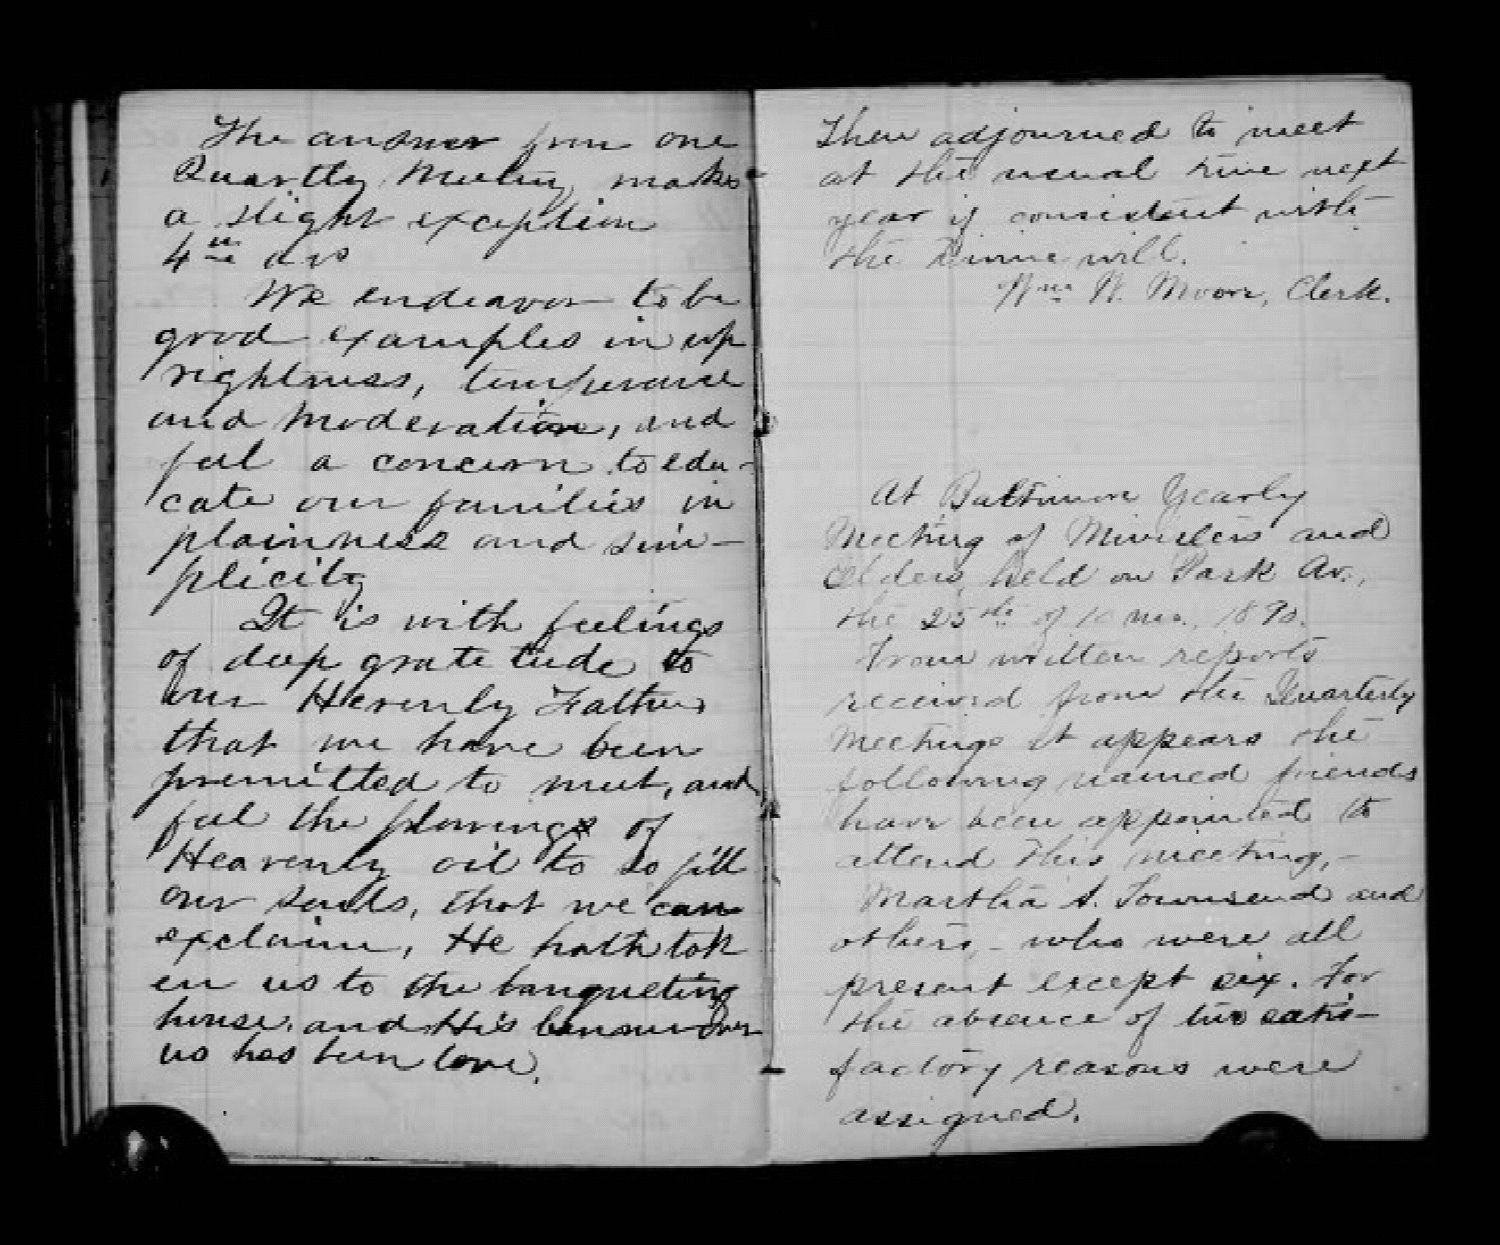 The answer from one
Quartly Meeting makes
a slight exception
4th ans
We endeavor to be
good examples in up
rightness, temperance
and moderation, and
feel a concern to edu-
cate our families in
plainness and sim-
plicity
It is with feelings
of deep gratetude to
our Hevenly Father
that we have been
premitted to meet, and
feel the flowings of
Heavenly oil to so fill
our souls, that we can
exclaim, He hath tak
en us to the banqueting
house. and His banner over
us has been love.
Then adjourned to meet
at the usual time next
year if consistent with
the Divine will.
Wm W. Moore, Clerk.
At Baltimore Yearly
Meeting of Ministers and
Elders, held on Park Av.,
the 25th of 10 mo., 1890.
From written reports
received from the Quarterly
Meetings it appears the
following named friends
have been appointed to
attend this meeting,-
Martha S. Townsend and
others, - who were all
present except six. For
the absence of two satis-
factory reasons were
assigned.